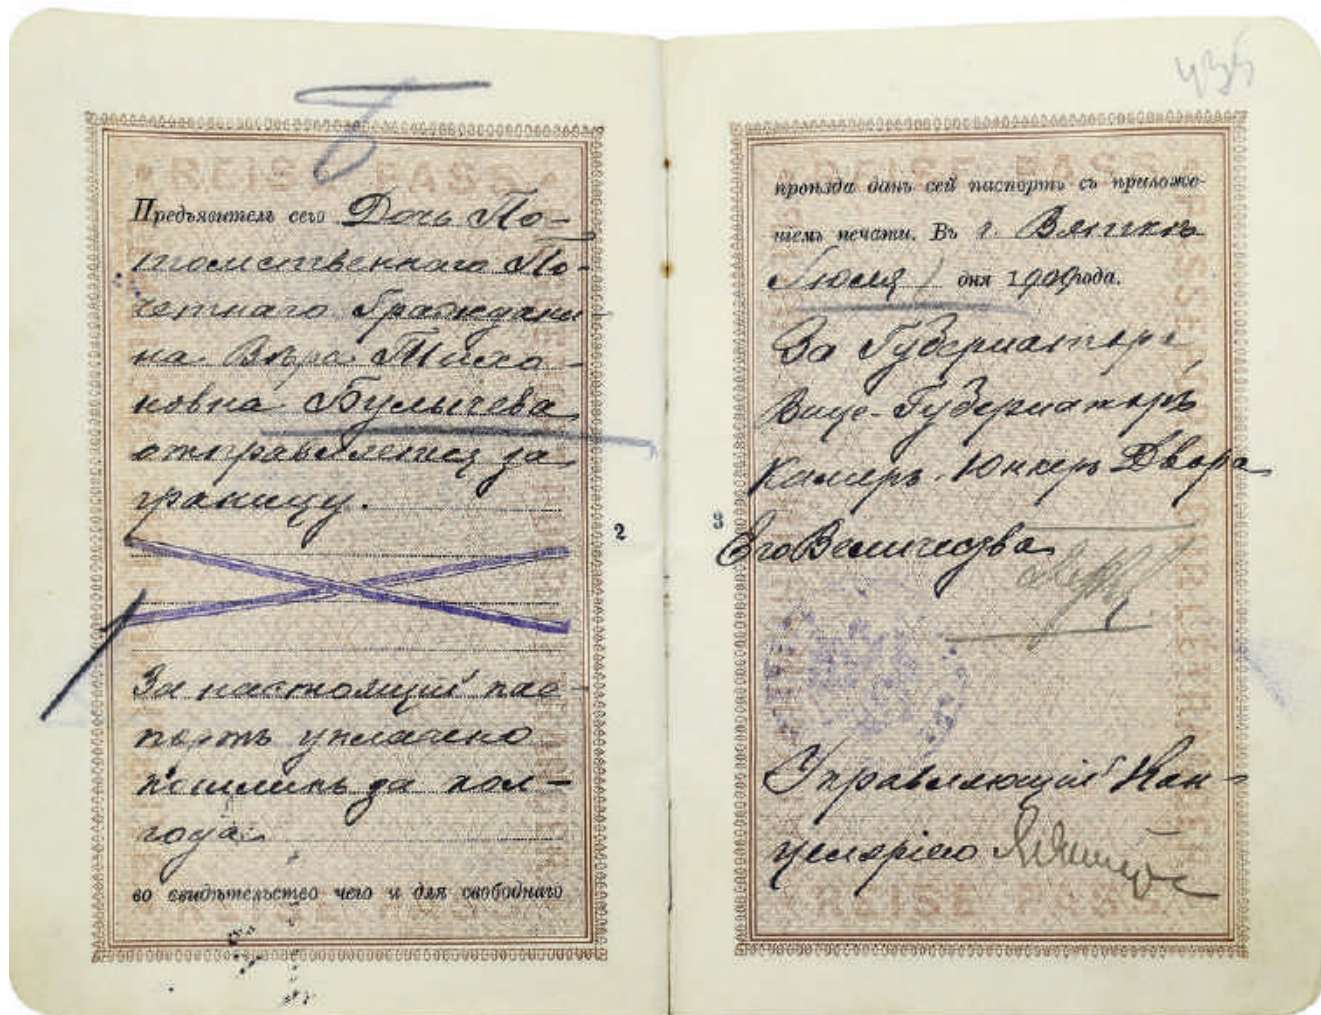 Предъявитель сего Дочь По-
томственнаго По-
четнаго Граждани-
на Вѣра Тихо-
новна Булычева
отправляется за
границу.
2
За настоящий пас-
портъ уплачено
пошлинъ за пол-
года.
во свидѣтельство чего и для свободнаго
435
проѣзда данъ сей паспортъ съ приложе-
ніемъ печати. Въ г. Вяткѣ
Іюля дня 1909 года.
За Губернатора,
Вице-Губернаторъ
Камеръ-Юнкеръ Двора
3
Его Величества
Управляющій Кан-
целяріею
REISE PASS
REISE PASS